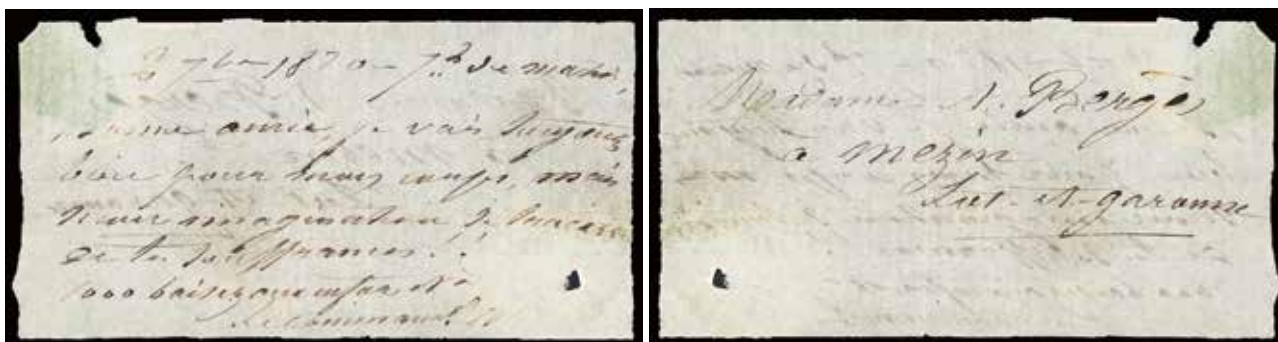 8 7bre 1870 - 7h de matin,
amie, je vais toujours
bien pour mon compte, mais
mon imagination
de tes souffrances..
1000 baisers aux enfants
Le Command
Madame A. Bergès
à Mezin
Lot-et-garonne